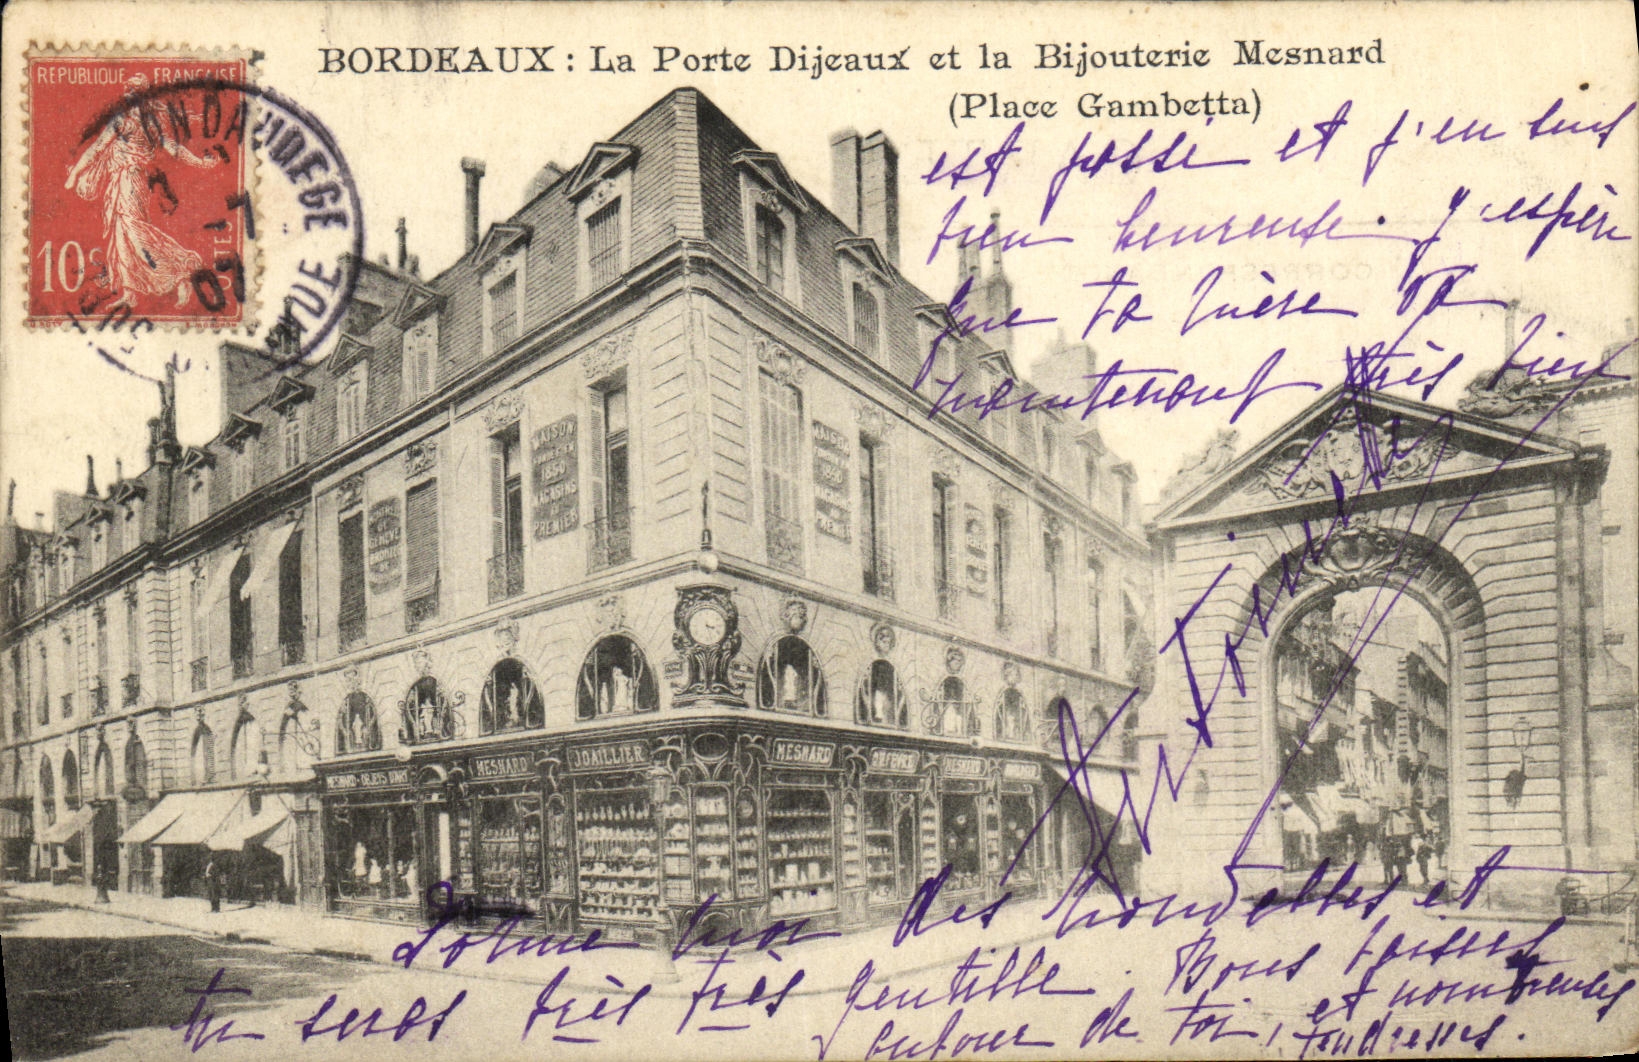 BORDEAUX : La Porte Dijeaux et la Bijouterie Mesnard
(Place Gambetta)
REPUBLIQUE FRANÇAISE
10c
POSTES
O. ROTY
E. MOUCHON
3 -7
07
est passé et j'en suis
bien heureuse. J'espère
que ta mère va
maintenant très bien
MAISON
FONDÉE EN
1850
MAGASINS
AU
PREMIER
MAISON
1850
MAGASINS
AU
PREMIER
MESNARD - OBJETS D'ART
MESNARD
JOAILLIER
MESNARD
ORFEVRE
MESNARD
HORLOGER
Donne moi des nouvelles et
tu seras très très gentille. Bons baisers
autour de toi, et nombreuses
tendresses.